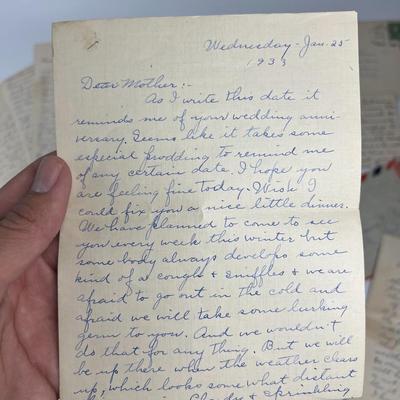 Wednesday - Jan. 25
1933
Dear Mother:-
As I write this date it
reminds me of your wedding anni-
versary. Seems like it takes some
especial prodding to remind me
of any certain date. I hope you
are feeling fine today. Wish I
could fix you a nice little dinner.
We have planned to come to see
you every week this winter but
some body always develops some
kind of a cough + sniffles + we are
afraid to go out in the cold and
afraid we will take some lurking
germ to you. And we wouldn't
do that for any thing. But we will
be up there when the weather clears
up, which looks some what distant
Cloudy + Sprinkling